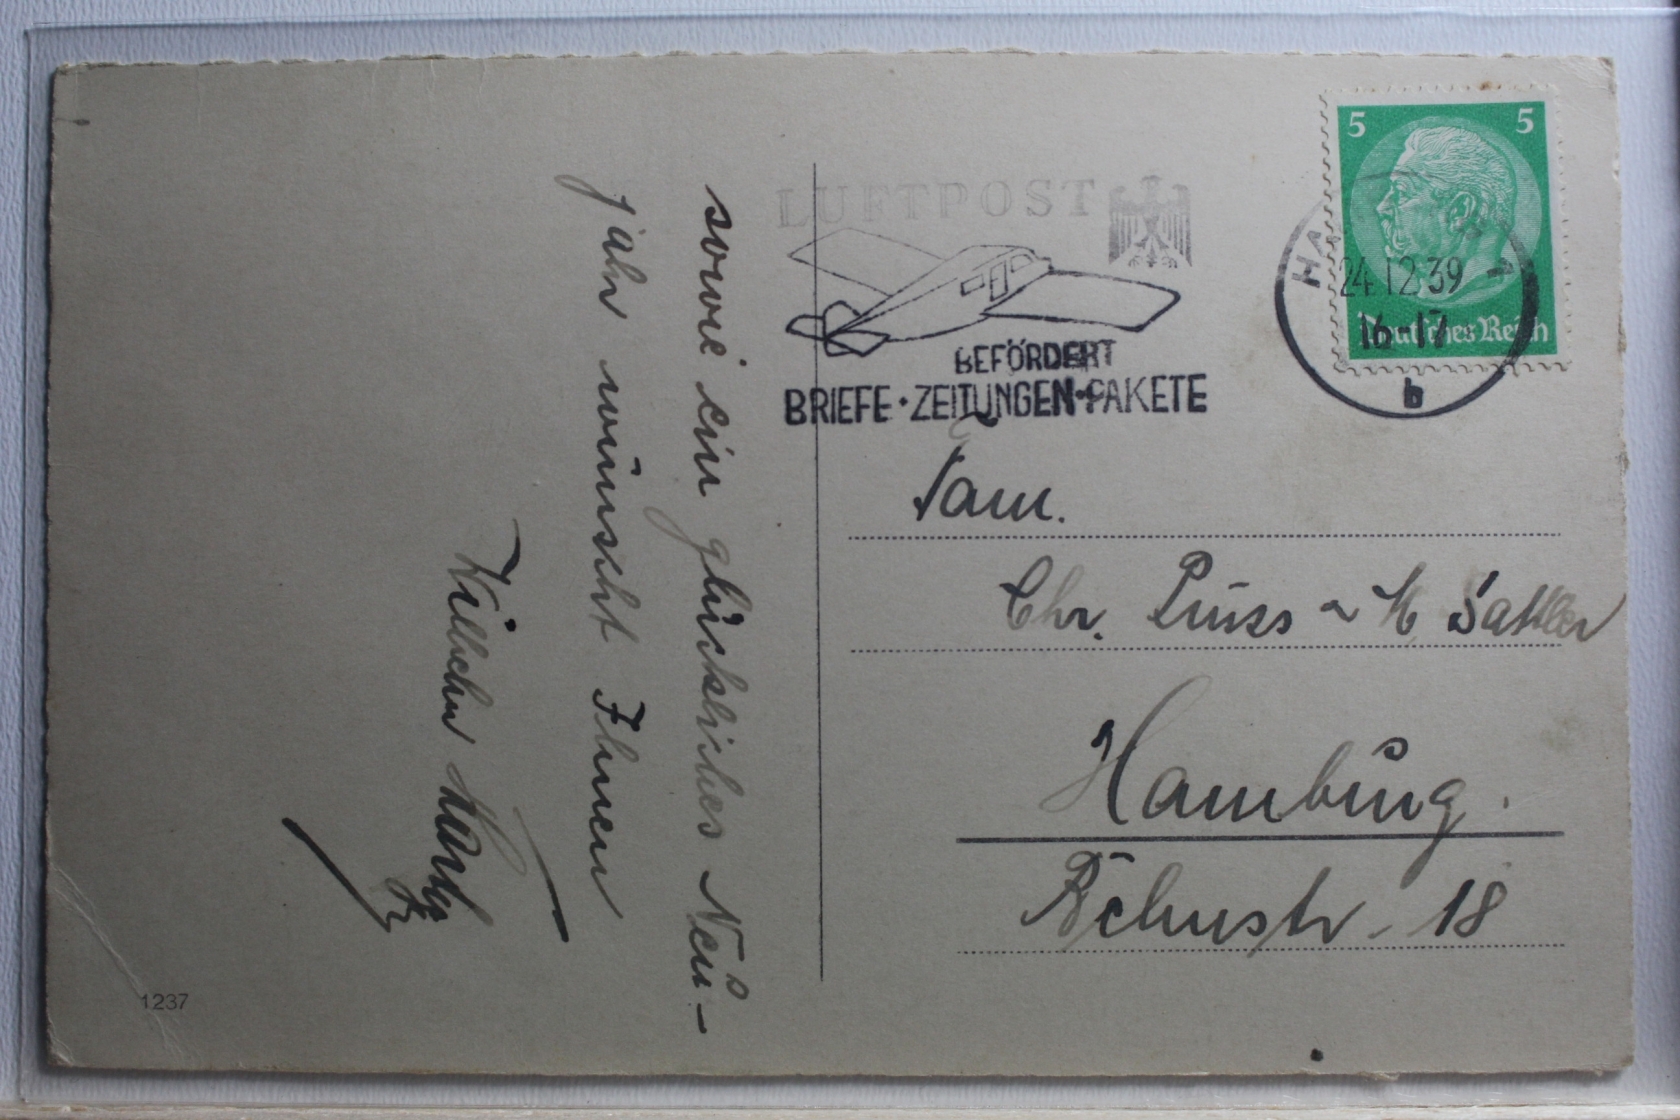 sowie ein glückliches Neu-
jahr wünscht Ihnen
Wilhelm
1237
LUFTPOST
BEFÖRDERT
BRIEFE·ZEITUNGEN·PAKETE
5 5
Deutsches Reich
24.12.39
16-17
b
Fam.
Chr. Puss u M Sattler
Hamburg.
18